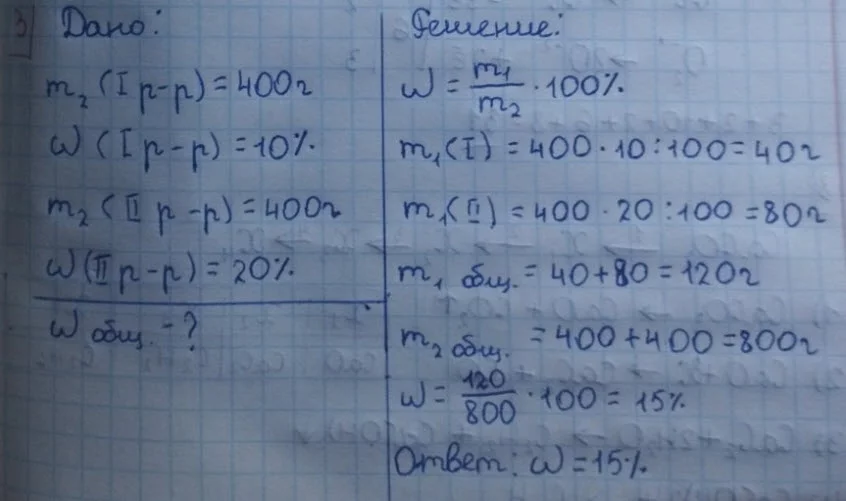 3 Дано:
m₂ (I р-р) = 400г
ω (I р-р) = 10%
m₂ (II р-р) = 400г
ω (II р-р) = 20%
ω общ. - ?
Решение:
ω = m₁/m₂ · 100%
m₁(I) = 400 · 10 : 100 = 40г
m₁(II) = 400 · 20 : 100 = 80г
m₁ общ. = 40 + 80 = 120г
m₂ общ. = 400 + 400 = 800г
ω = 120/800 · 100 = 15%
Ответ: ω = 15%